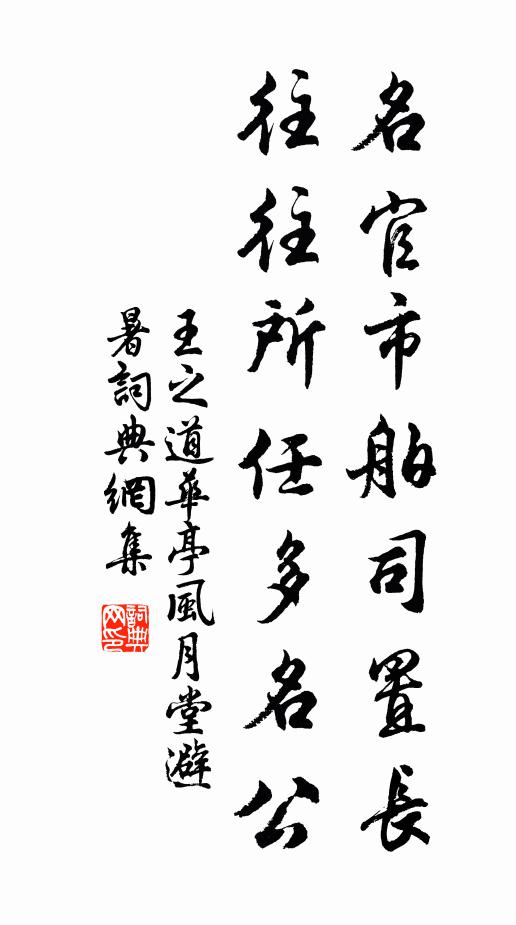 名官市舶司置長
往往所任多名公
王之道華亭風月堂避
暑詞典網集
詞典
网印